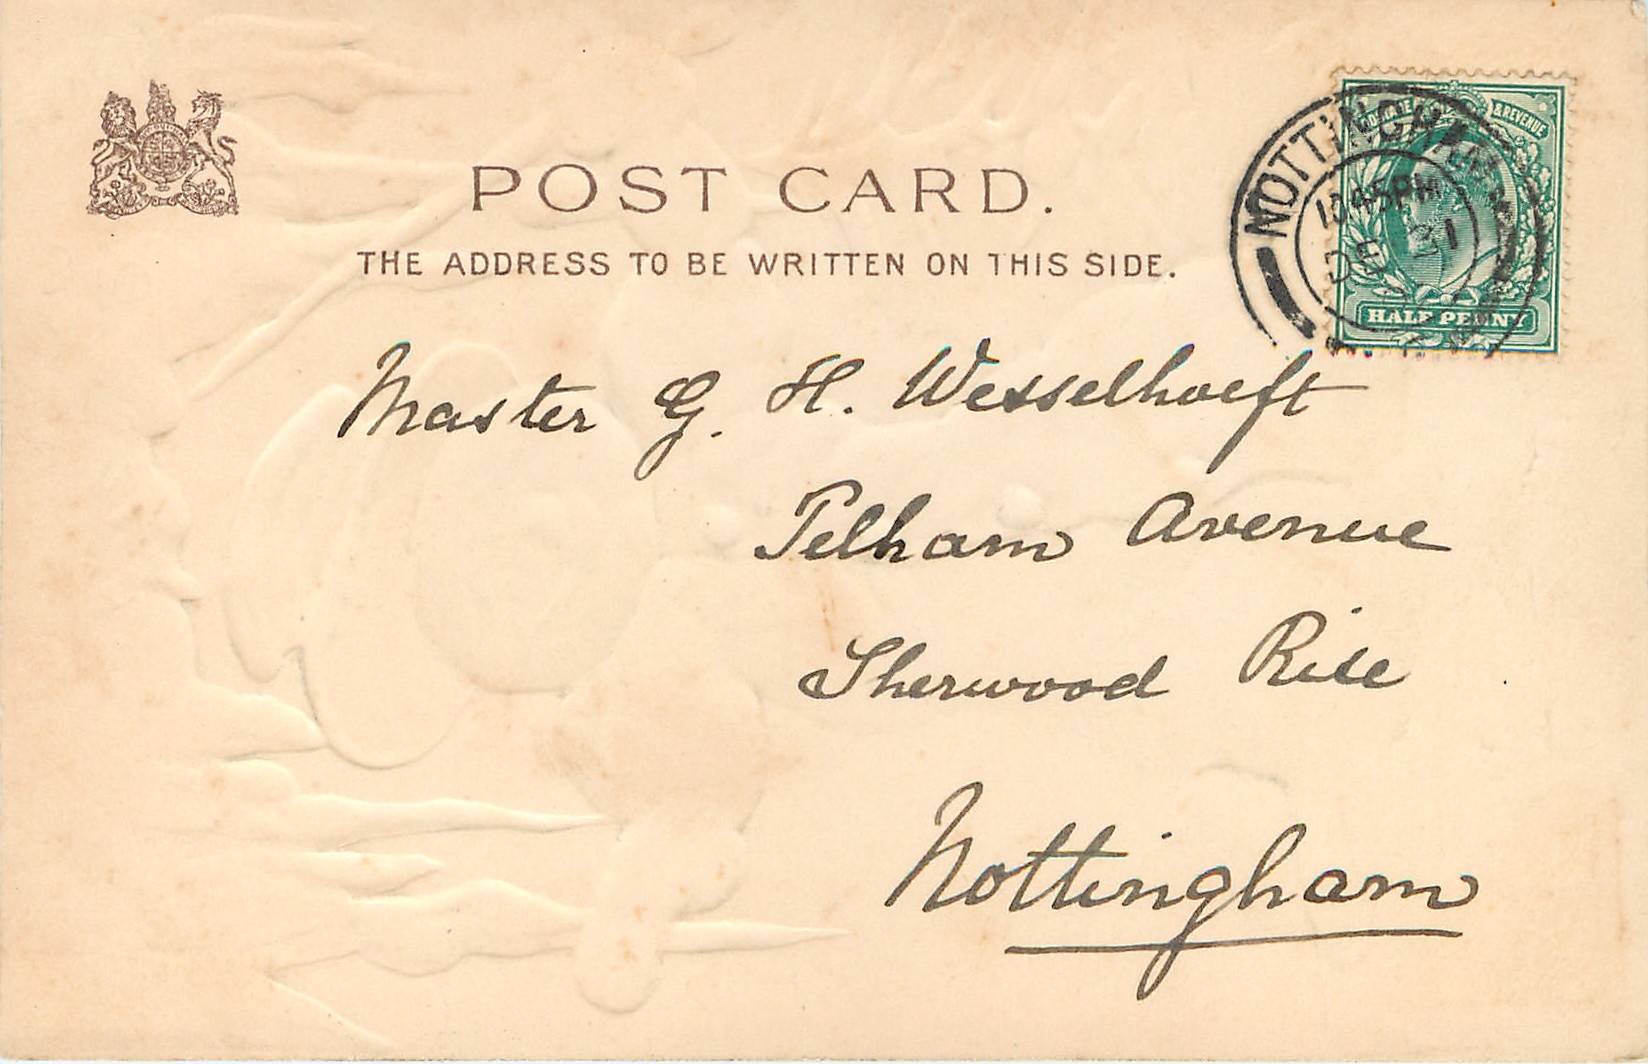 POST CARD.
THE ADDRESS TO BE WRITTEN ON THIS SIDE.
& REVENUE
NOTTINGHAM
10 45 PM
DE 31
HALF PENNY
Master G. H. Wesselhoeft
Pelham Avenue
Sherwood Rise
Nottingham